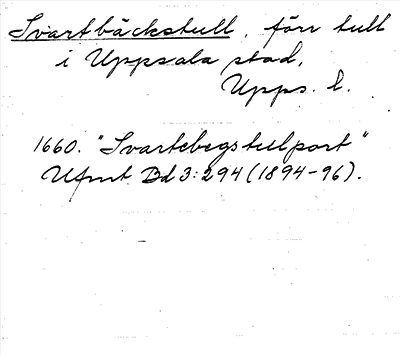 Svartbäckstull, förr tull
i Uppsala stad,
Upps. l.
1660. "Svartebegstulport"
Ufmt Bd 3:294 (1894-96).